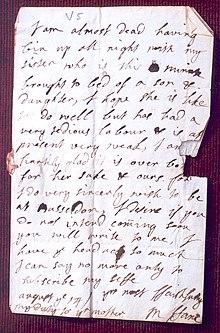 V5
I am almost dead having
bin up all night with my
sister who is this minute
brought to bed of a son &
daughter, I hope she is like
to do well but has had a
very tedious labour & is at
present very weak, I am
hartily glad it is over both
for her sake & ours for
I do very sincerly wish to be
at I desire if you
do not intend coming soon
you will write to me I
have yᵉ head ach so much
I can say no more only to
subscribe my selfe
august yᵉ 14 yʳ most ffaithfully
my duty to yʳ mother M ffane